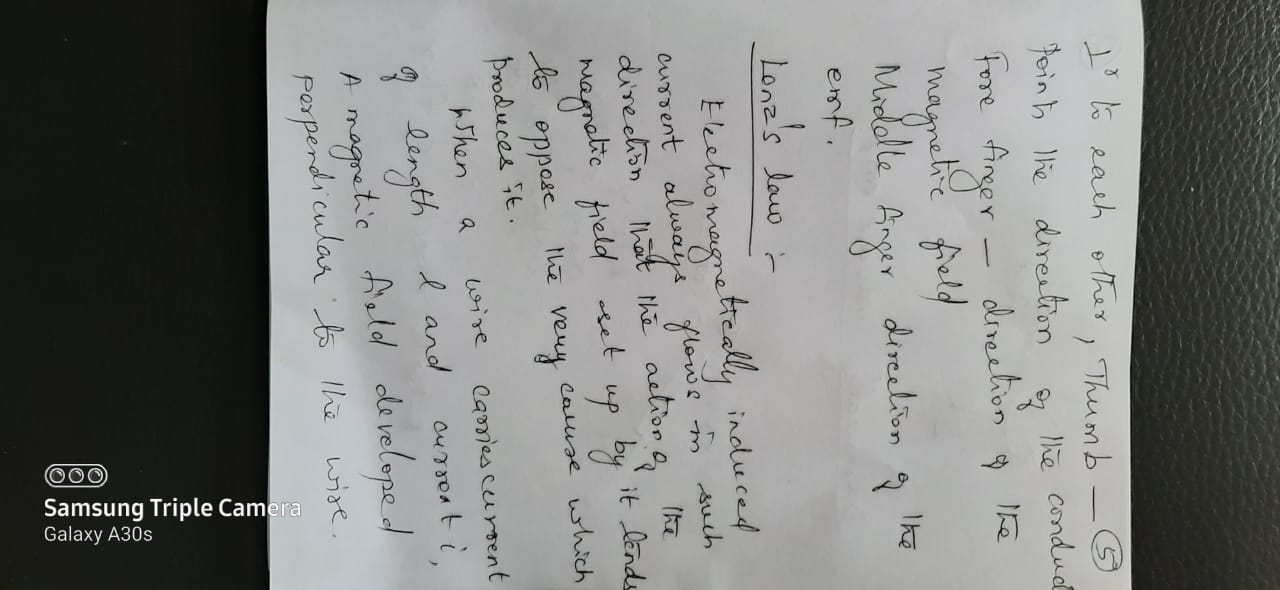 ⊥r to each other, Thumb — 5
Points the direction of the conduct
Fore finger — direction of the
magnetic field
Middle finger direction of the
emf.
Lenz's law :-
Electromagnetically induced
current always flows in such
direction that the action of the
magnetic field set up by it tends
to oppose the very cause which
produces it.
When a wire carries current
of length l and current i,
A magnetic field developed
perpendicular to the wire.
Samsung Triple Camera
Galaxy A30s